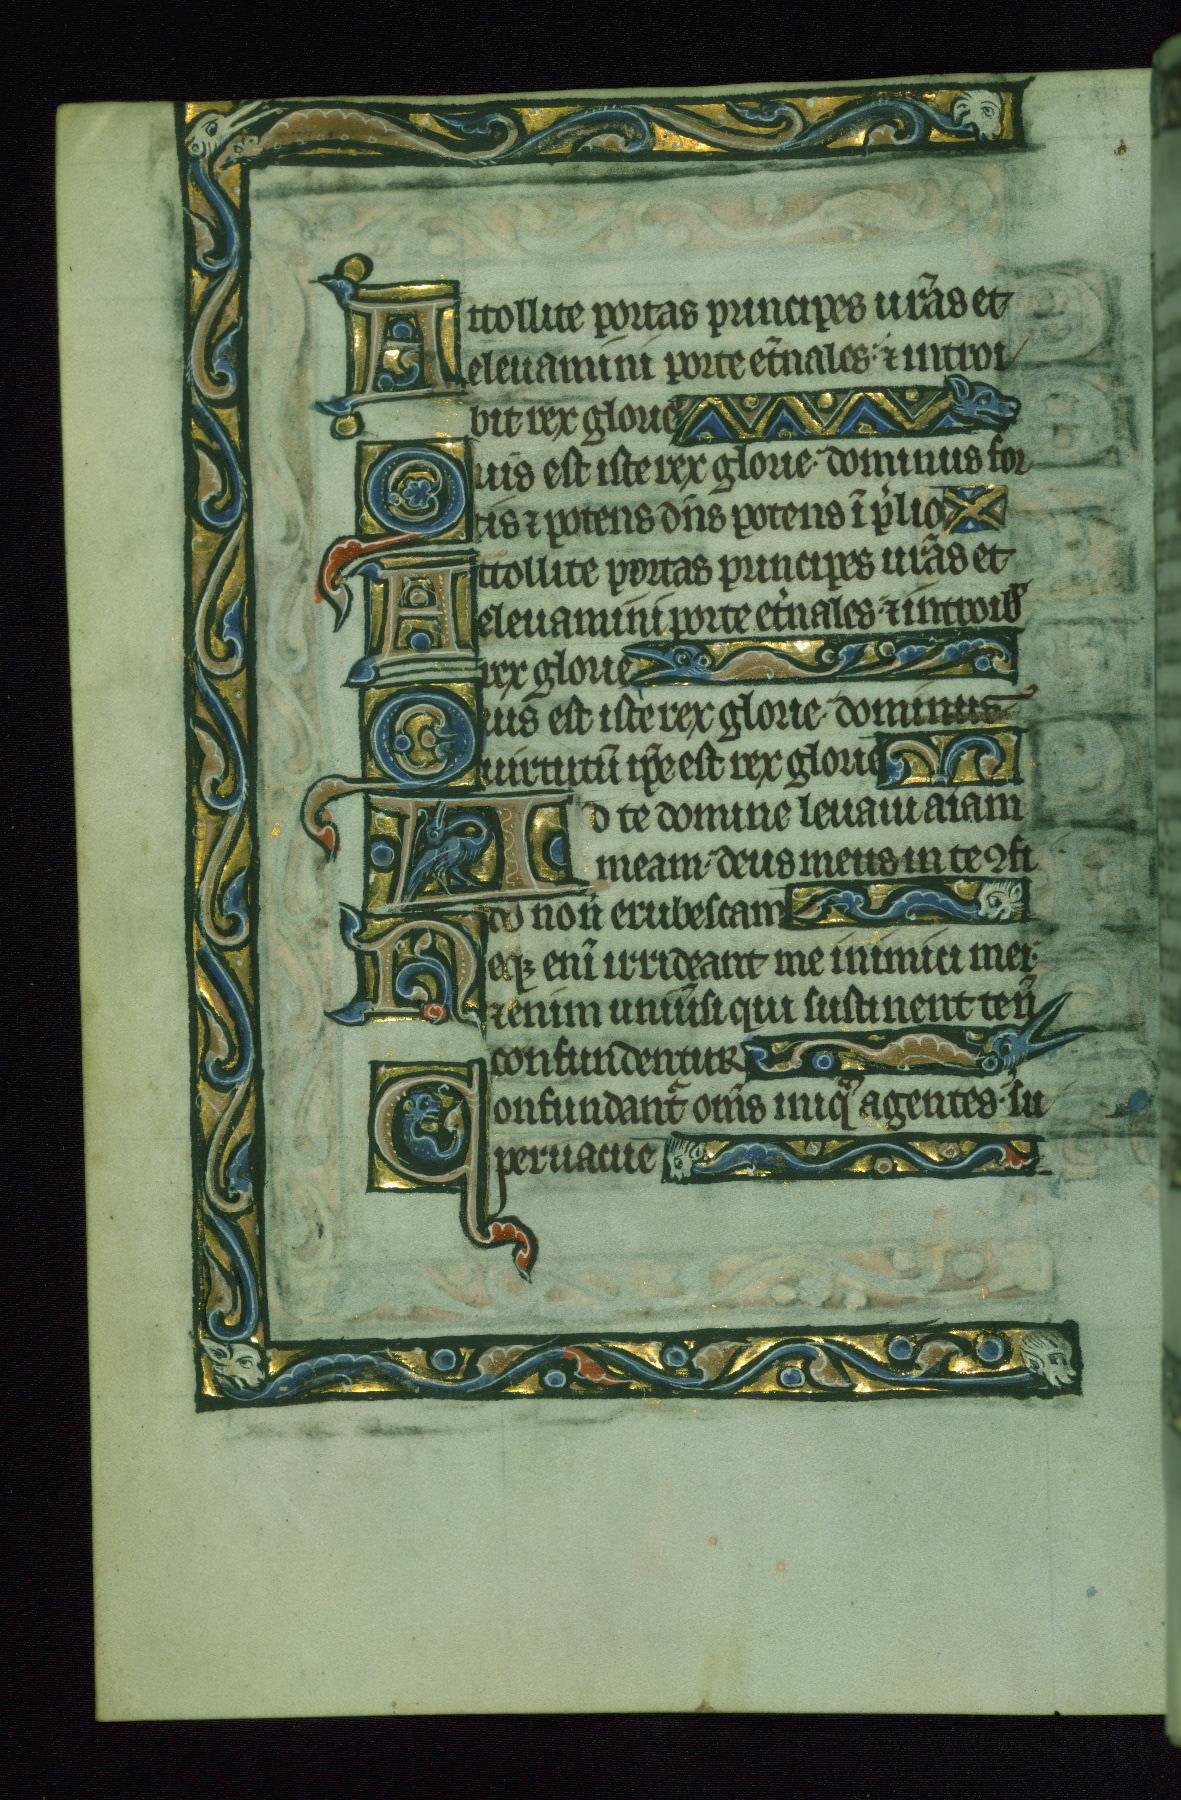 Attollite portas principes ur̄as et
eleuamini porte et̄nales· ⁊ introi
bit rex glorie
Quis est iste rex glorie· dominus for
tis ⁊ potens dn̄s potens ī p̄lio
Attollite portas principes ur̄as et
eleuamini porte et̄nales· ⁊ introib
rex glorie
Quis est iste rex glorie· dominus
uirtutū ip̄e est rex glorie
Ad te domine leuaui aīam
meam· deus meus in te ꝯfi
do non̄ erubescam
Neqꝫ enī irrideant me inimici mei·
⁊enim uniūsi qui sustinent te n̄
confundentur
Confundant᷑ om̄s iniq̄ agentes· su
peruacue